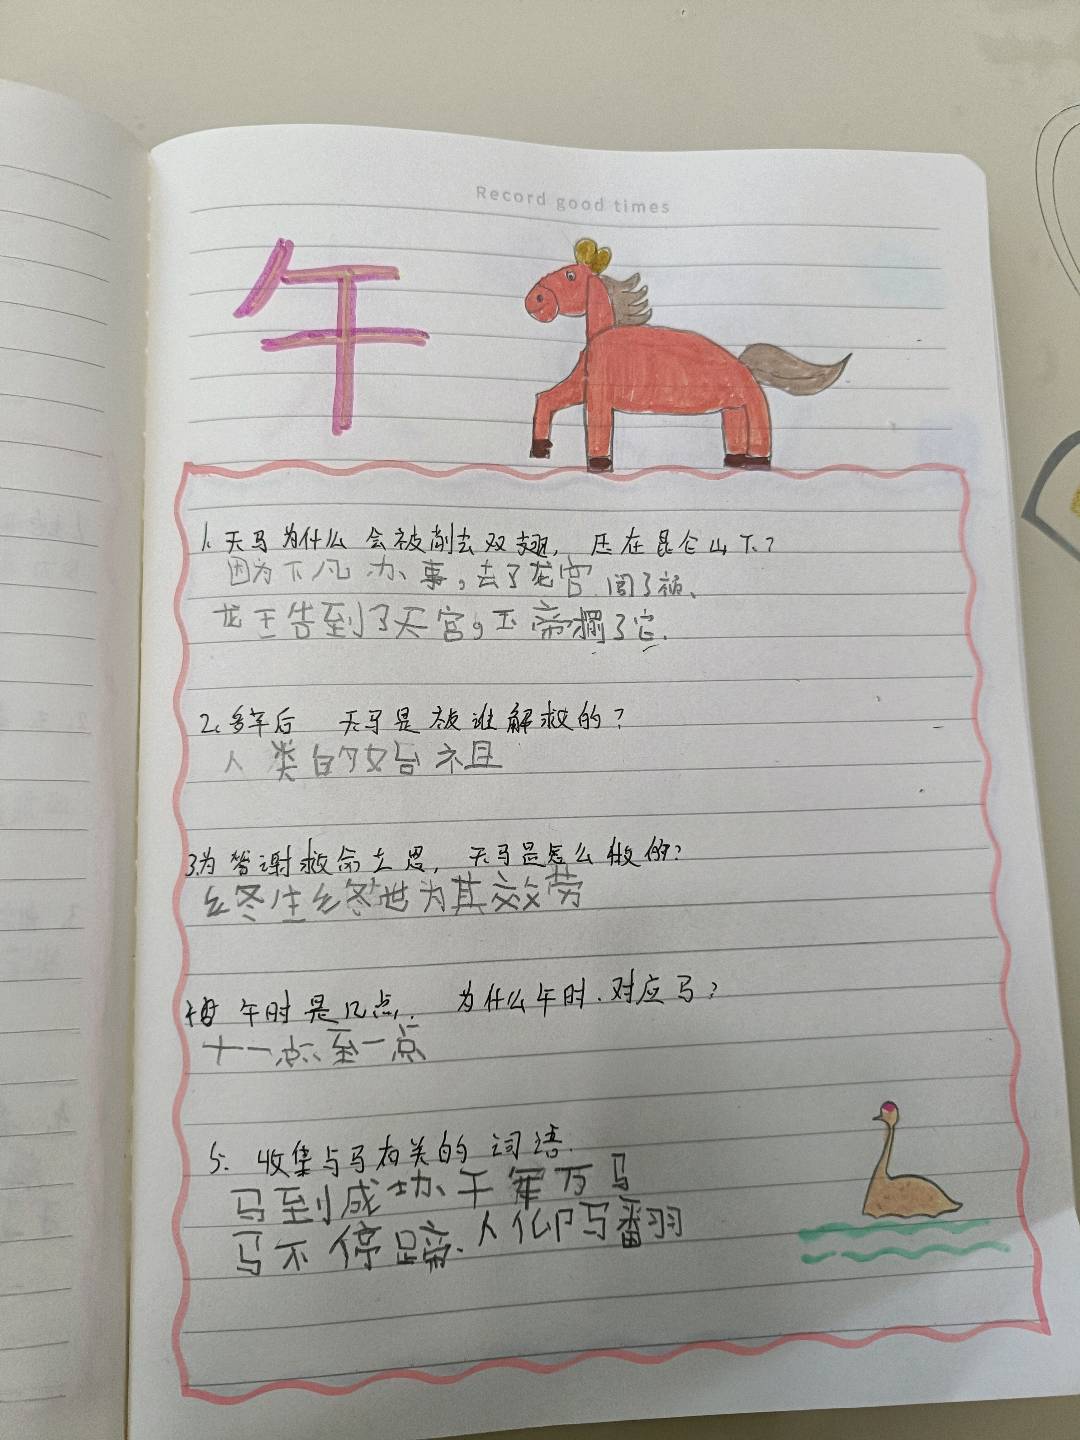 Record good times
午
1. 天马为什么会被削去双翅，压在昆仑山下？
因为下凡办事，去了龙宫闯了祸、
龙王告到了天宫，玉帝
了它.
2. 多年后 天马是被谁解救的？
人类的始祖
3. 为答谢救命之恩，天马是怎么做的？
终生终世为其效劳
午时是几点，为什么午时.对应马？
十一点至一点
5. 收集与马有关的词语.
马到成功、千军万马
马不停蹄、人仰马翻